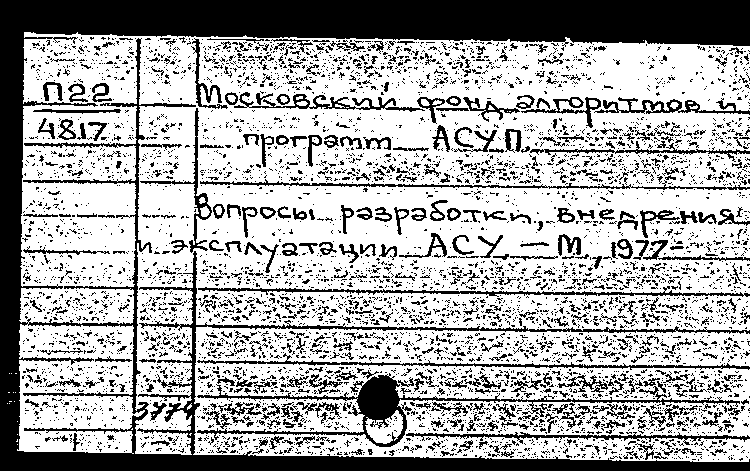 П22
4817
Московский фонд алгоритмов и
программ АСУП.
Вопросы разработки, внедрения
и эксплуатации АСУ. — М., 1977-